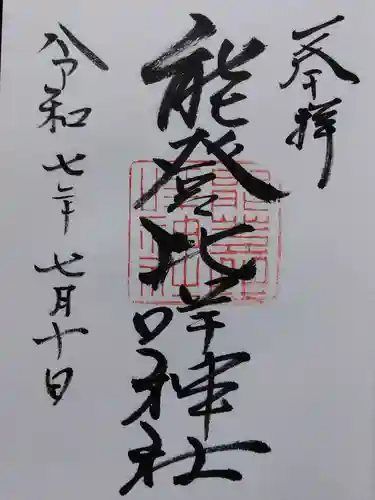 奉拝
能登比咩神社
令和七年七月十日